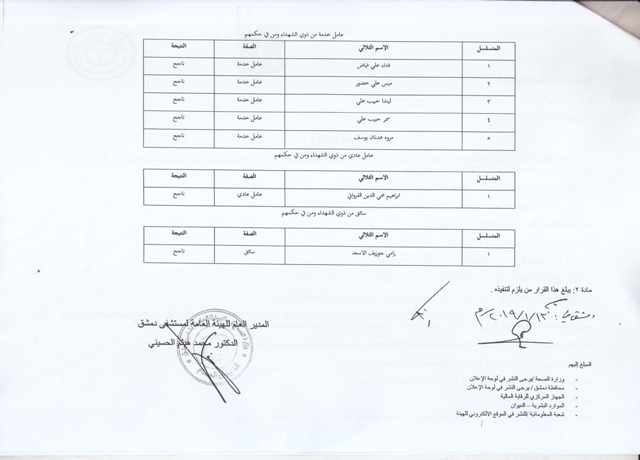 عامل خدمة من ذوي الشهداء ومن في حكمهم
المتسلسل الاسم الثلاثي الصفة النتيجة
١ فداء علي فياض عامل خدمة ناجح
٢ ميس علي خضور عامل خدمة ناجح
٣ ليندا حبيب علي عامل خدمة ناجح
٤ سمر حبيب علي عامل خدمة ناجح
٥ مروه عدنان يوسف عامل خدمة ناجح
عامل عادي من ذوي الشهداء ومن في حكمهم
المتسلسل الاسم الثلاثي الصفة النتيجة
١ ابراهيم محي الدين الفرواتي عامل عادي ناجح
سائق من ذوي الشهداء ومن في حكمهم
المتسلسل الاسم الثلاثي الصفة النتيجة
١ رامي جوزيف الاسعد سائق ناجح
مادة ٢: يبلغ هذا القرار من يلزم لتنفيذه .
المدير العام للهيئة العامة لمستشفى دمشق
الدكتور محمد هيثم الحسيني
المبلغ إليهم
- وزارة الصحة /يرجى النشر في لوحة الإعلان
- محافظة دمشق / يرجى النشر في لوحة الإعلان
- الجهاز المركزي للرقابة المالية
- الموارد البشرية – الديوان
- شعبة المعلوماتية /للنشر في الموقع الالكتروني للهيئة